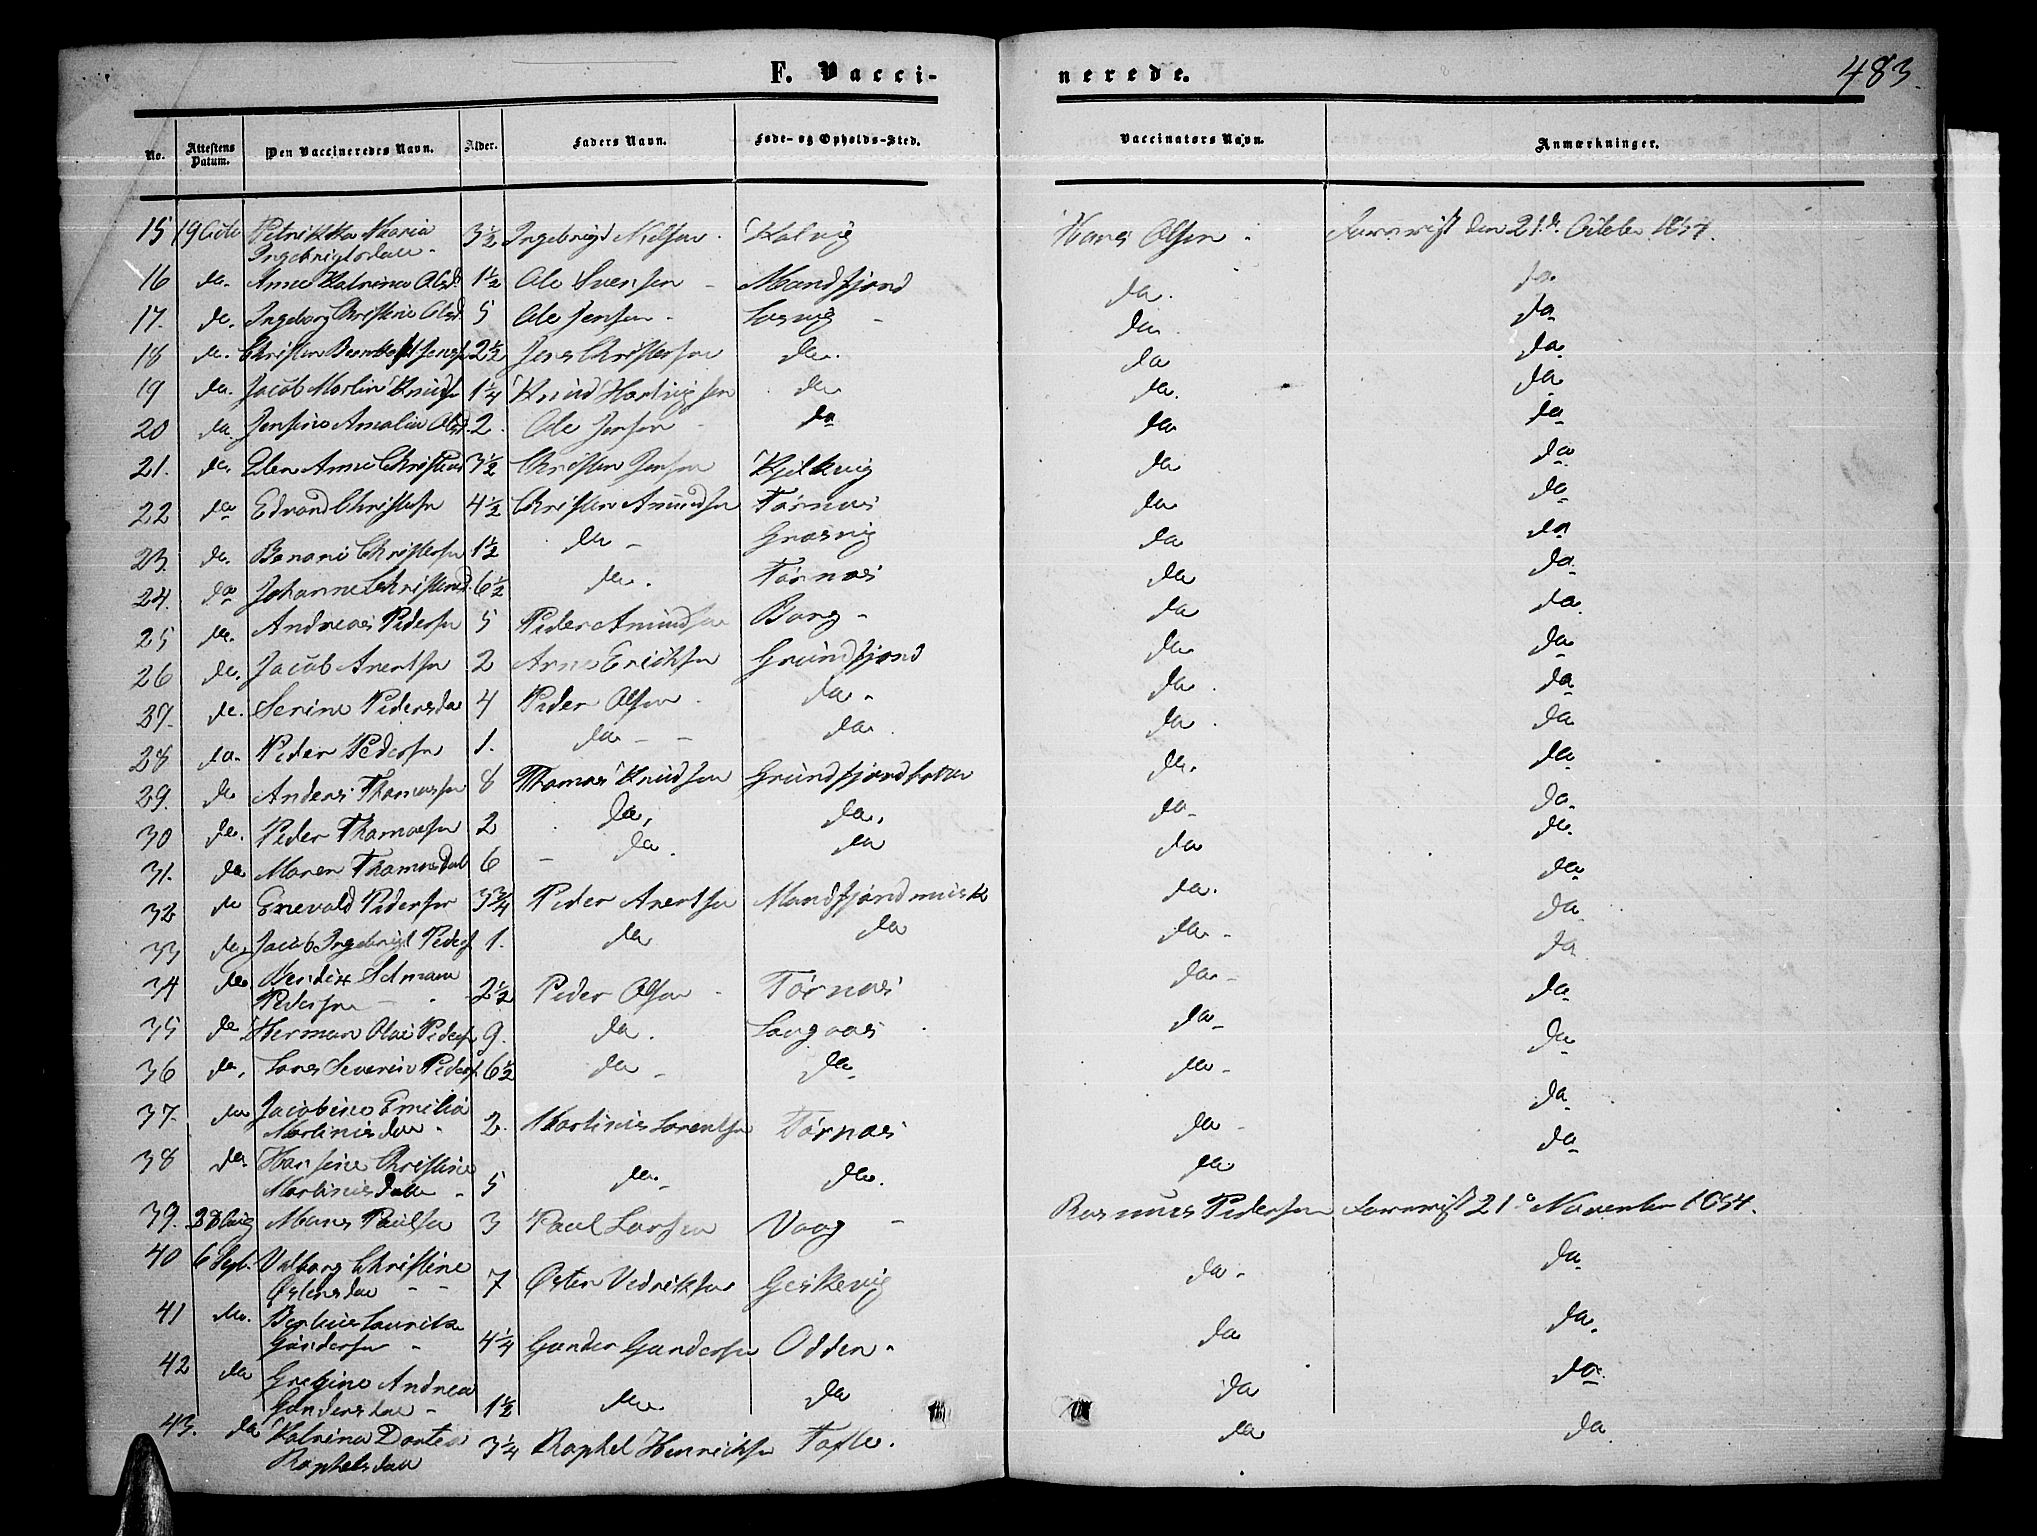 F. Vacci-
nerede.
483.
No.
Attestens Datum.
Den Vaccineredes Navn.
Alder.
Faders Navn.
Føde- og Opholds-Sted.
Vaccinators Navn.
Anmærkninger.
15 19 Octb Petrikka Maria 3½ Ingebrigt Nielsen Kalvig Hans Olsen den 21de October 1854.
Ingebrigtsdatter
16 do. Anne Katrina Olsd. 1½ Ole Svensen Mandfjord do. do.
17. do. Ingeborg Christine Olsd. 5 Ole Jensen do. do.
18 do. Christen Jensen 2½ Jens Christensen do. do do.
19 do. Jacob Martin Knuds. 1¼ Knud Hartvigsen do do. do.
20 do. Jensine Amalia Olsd. 2. Ole Jensen do do do
21. do. Elen Anne Christensd. 3½ Christen Jensen Kjelkvig do do.
22 do Edvard Christensen 4½ Christen Amundsen Tørnæs do do
23. do. Christensen 1½ do Græsvig do do
24. do Johanne Christensd. 6½ do. Tørnæs do do.
25 do. Andreas Pedersen 5 Peder Amundsen Borg do do.
26 do. Jacob Arentsen 2 Arne Erichsen Grundfjord do. do.
27. do. Serine Pedersda 4 Peder Olsen do. do. do.
28 do. Peder Pedersen 1. do do. do. do
29. do Anders Thomassen 8 Thomas Knudsen Grundfjordbotn do. do.
30 do. Peder Thomasen 2 do. do. do. do.
31. do Maren Thomasdat 6 do. do do do.
32 do Enevald Pedersen 3¾ Peder Arentsen Mandfjord do. do.
33 do. Jacob Ingebrigt Peders. 1. do do do. do.
34 do. Bendix Selmann
Pedersen 2½ Peder Olsen Tørnæs do. do.
35 do Herman Olai Peders. 9. do. Langaas do. do.
36 do. Lars Severin Peders. 6½ do do. do. do.
37. do Jacobine Emilia
Martinisdatt. 2. Martinis Lorentsen Tørnæs do. do.
38 do. Hansine Christine
Martinisdatter 5 do. do. do do.
39. Aug Mons Paulsen 3 Paul Larsen Vaag Rasmus Pedersen 21 November 1854.
40 6 Sept. Valborg Christine
Østensdatter 7 Østen Vedriksen Geskevig do. do.
41 do. Laurits
Gundersen 4¼ Gunder Gundersen Odden. do do.
42 do Gregine Andrea
Gundersdatter 1½ do. do do do.
43. do Katrina Dortea
Raphelsdatt 3¼ Raphel Henriksen do do.